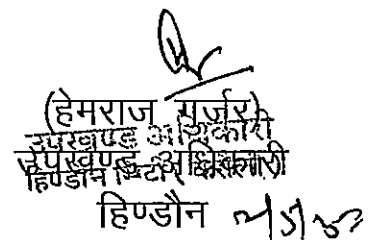 (हेमराज गुर्जर)
उपखण्ड अधिकारी
उपखण्ड अधिकारी
हिण्डौन सिटी
हिण्डौन